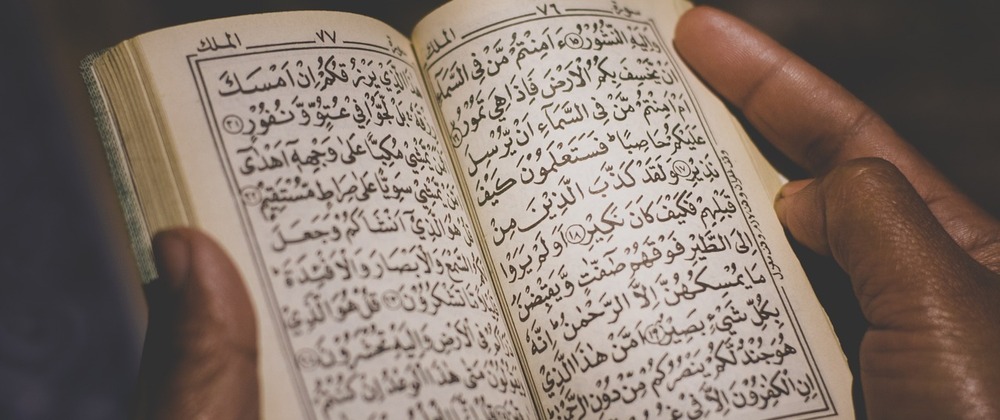 سورة ٧٦ الملك
وَاِلَيْهِ النُّشُوْرُ ﴿١٥﴾ ءَاَمِنْتُمْ مَّنْ فِي السَّمَآءِ
اَنْ يَّخْسِفَ بِكُمُ الْاَرْضَ فَاِذَا هِيَ تَمُوْرُ
اَمْ اَمِنْتُمْ مَّنْ فِي السَّمَآءِ اَنْ يُّرْسِلَ
عَلَيْكُمْ حَاصِبًا فَسَتَعْلَمُوْنَ كَيْفَ
نَذِيْرِ ﴿١٧﴾ وَلَقَدْ كَذَّبَ الَّذِيْنَ مِنْ
قَبْلِهِمْ فَكَيْفَ كَانَ نَكِيْرِ ﴿١٨﴾ اَوَلَمْ يَرَوْا
اِلَى الطَّيْرِ فَوْقَهُمْ صٰٓفّٰتٍ وَّيَقْبِضْنَ
مَا يُمْسِكُهُنَّ اِلَّا الرَّحْمٰنُ اِنَّهٗ
بِكُلِّ شَيْءٍ بَصِيْرٌ ﴿١٩﴾ اَمَّنْ هٰذَا الَّذِيْ
هُوَ جُنْدٌ لَّكُمْ يَنْصُرُكُمْ مِّنْ دُوْنِ الرَّحْمٰنِ
اِنِ الْكٰفِرُوْنَ اِلَّا فِيْ
سورة ٧٧ الملك
الَّذِيْ يَرْزُقُكُمْ اِنْ اَمْسَكَ
رِزْقَهٗ بَلْ لَّجُّوْا فِيْ عُتُوٍّ وَّنُفُوْرٍ ﴿٢١﴾
يَّمْشِيْ مُكِبًّا عَلٰى وَجْهِهٖٓ اَهْدٰٓى
يَّمْشِيْ سَوِيًّا عَلٰى صِرَاطٍ مُّسْتَقِيْمٍ ﴿٢٢﴾
هُوَ الَّذِيْٓ اَنْشَاَكُمْ وَجَعَلَ
السَّمْعَ وَالْاَبْصَارَ وَالْاَفْئِدَةَ
مَّا تَشْكُرُوْنَ ﴿٢٣﴾ قُلْ هُوَ الَّذِيْ
فِي الْاَرْضِ وَاِلَيْهِ تُحْشَرُوْنَ ﴿٢٤﴾
وَيَقُوْلُوْنَ مَتٰى هٰذَا الْوَعْدُ اِنْ كُنْتُمْ